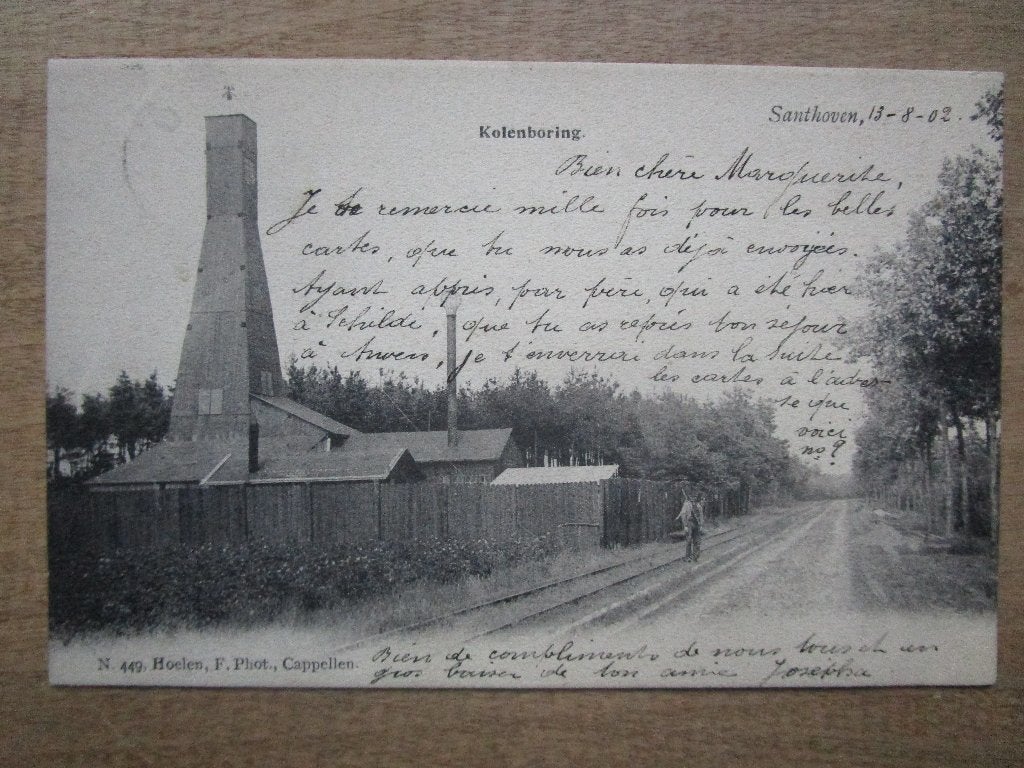 Santhoven, 13-8-02.
Kolenboring.
Bien chère Marguerite,
Je te remercie mille fois pour les belles
cartes, que tu nous as déjà envoyées.
Ayant appris, par père, qui a été hier
à Schilde, que tu as ton séjour
à Anvers, je t'enverrai dans la suite
les cartes à l'adres-
se que
voici
no 9
N. 449, Hoelen, F. Phot., Cappellen.
Bien de compliments de nous tous et un
gros baiser de ton amie Josepha